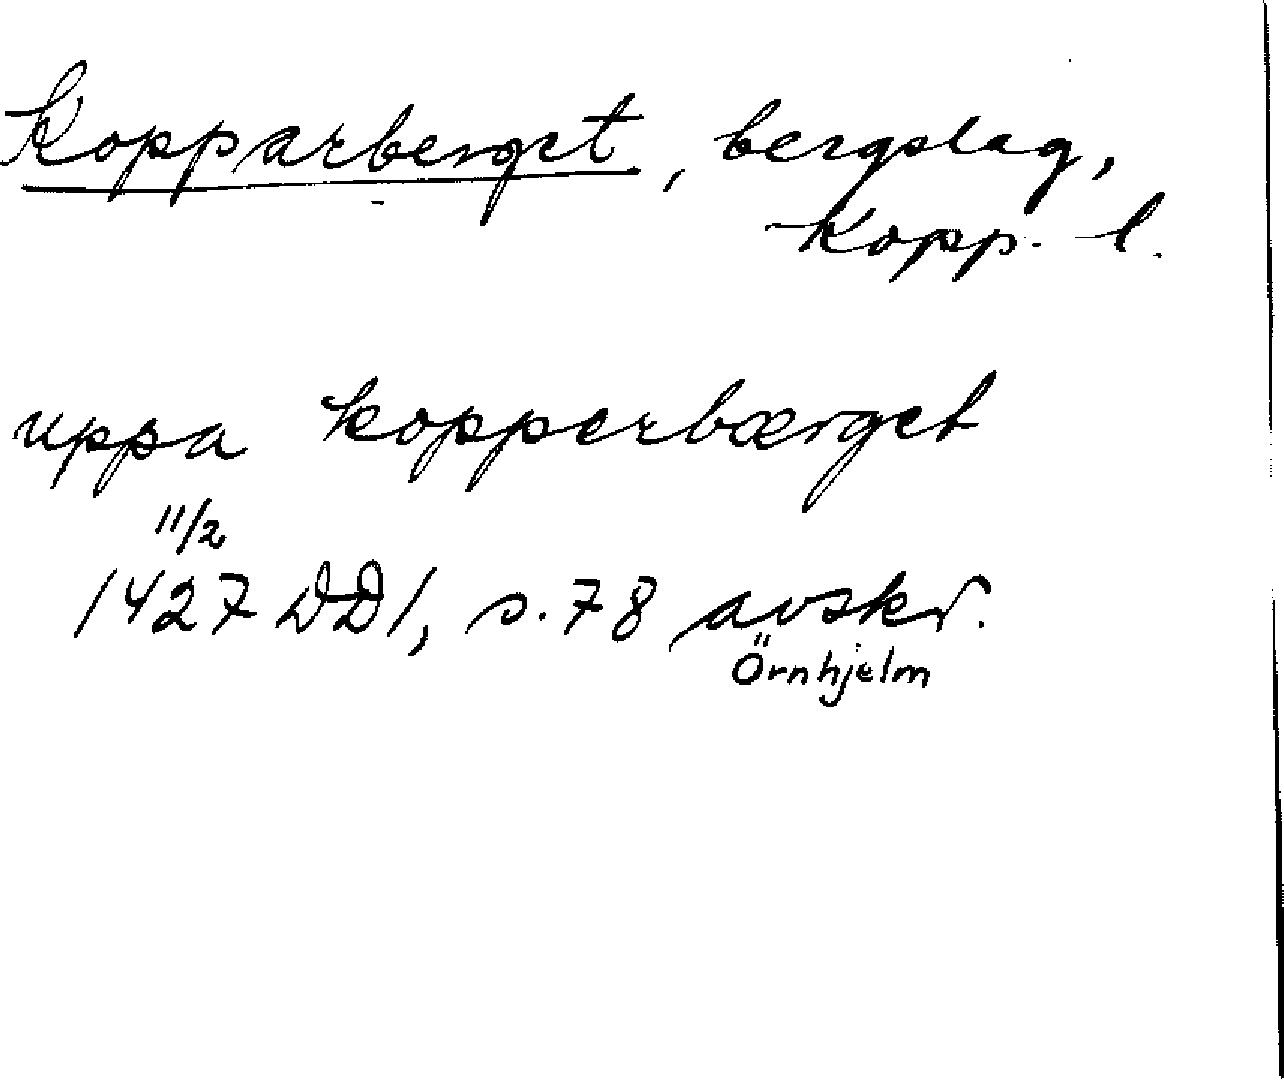 Kopparberget, bergslag,
Kopp. l.
uppa kopperbærget
11/2
1427 DD1, s. 78 avskr.
Örnhjelm